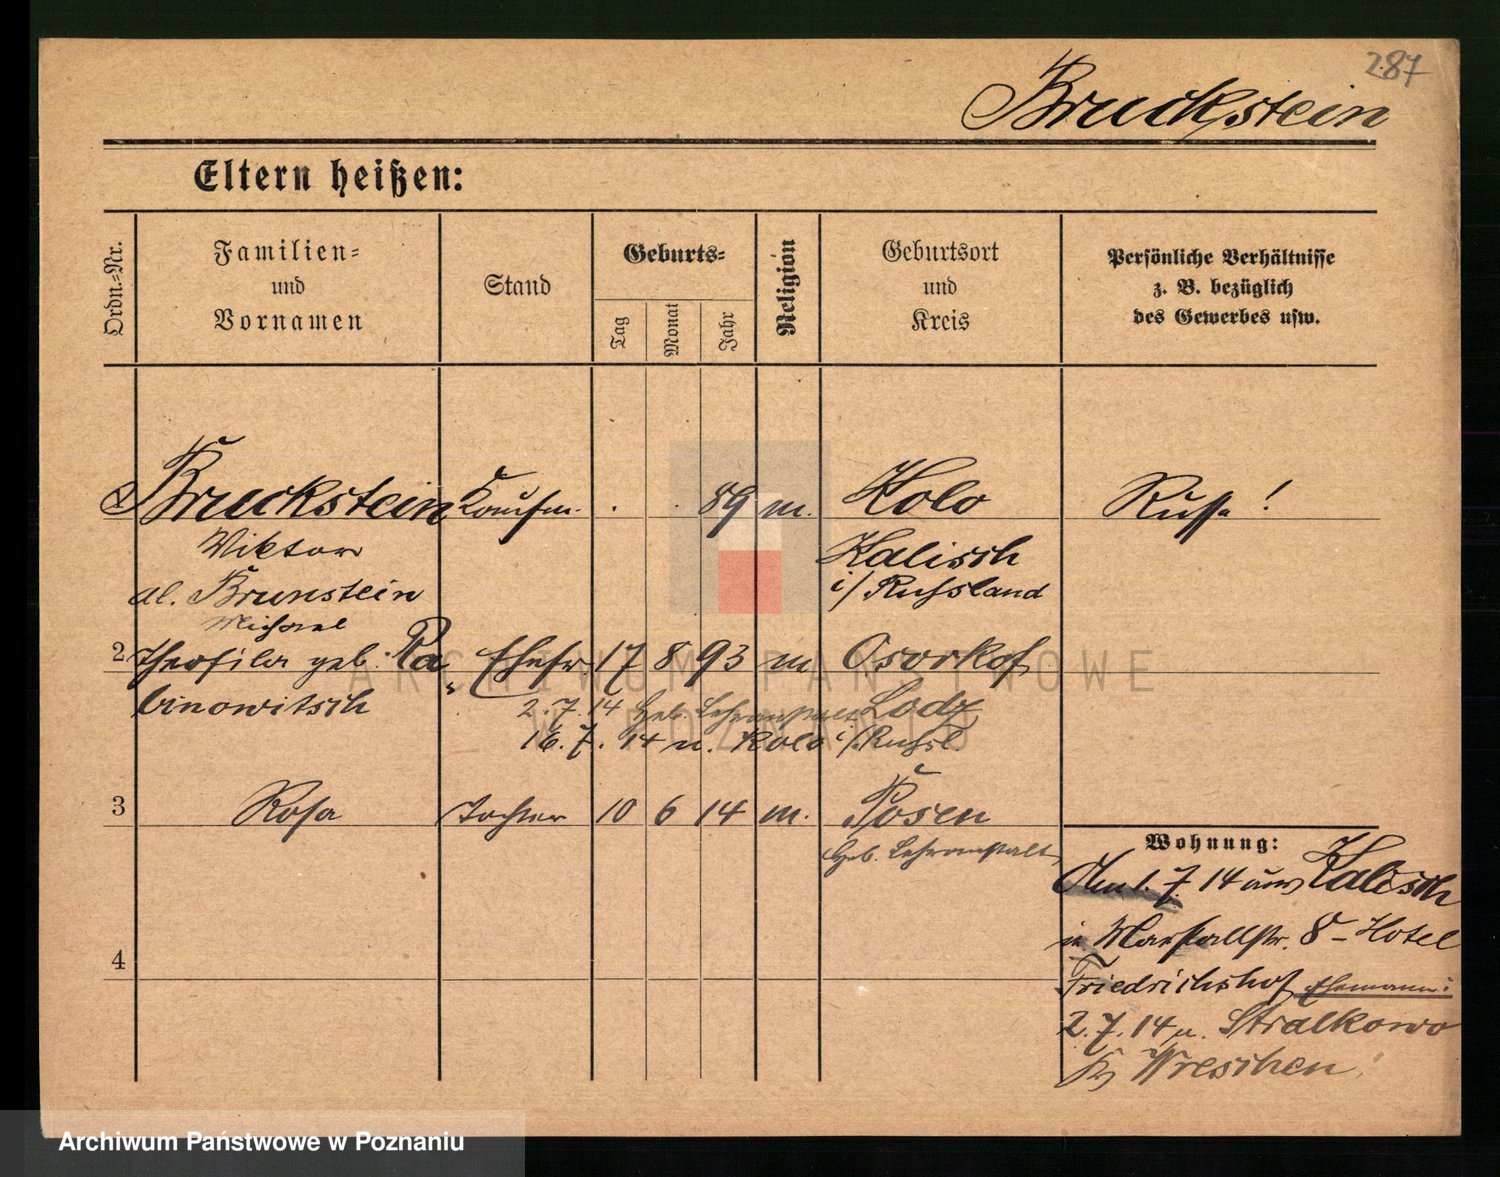 287
Bruckstein
Eltern heißen:
Ordn.-Nr.
Familien-
und
Vornamen
Stand
Geburts-
Tag
Monat
Jahr
Religion
Geburtsort
und
Kreis
Persönliche Verhältnisse
z. B. bezüglich
des Gewerbes usw.
1 Bruckstein Kaufm. . . 89 m. Kolo Russe !
Viktor Kalisch
al. Brunstein i/ Russland
Michael
2 Theofila geb. Ra- Ehefr. 17 8 93 m. Osorkof
binowitsch
2.7.14 Heb. Lehranstalt Lodz
16.7.14 n. Kolo i/ Russl.
3 Rosa Tochter 10 6 14 m. Posen
Heb. Lehranstalt
4
Wohnung:
Am 1.7.14 aus Kalisch
in Marstallstr. 8 - Hotel
Friedrichshof Ehemann:
2.7.14 n. Stralkowo
Kr Wreschen
ARCHIWUM PAŃSTWOWE
W POZNANIU
Archiwum Państwowe w Poznaniu